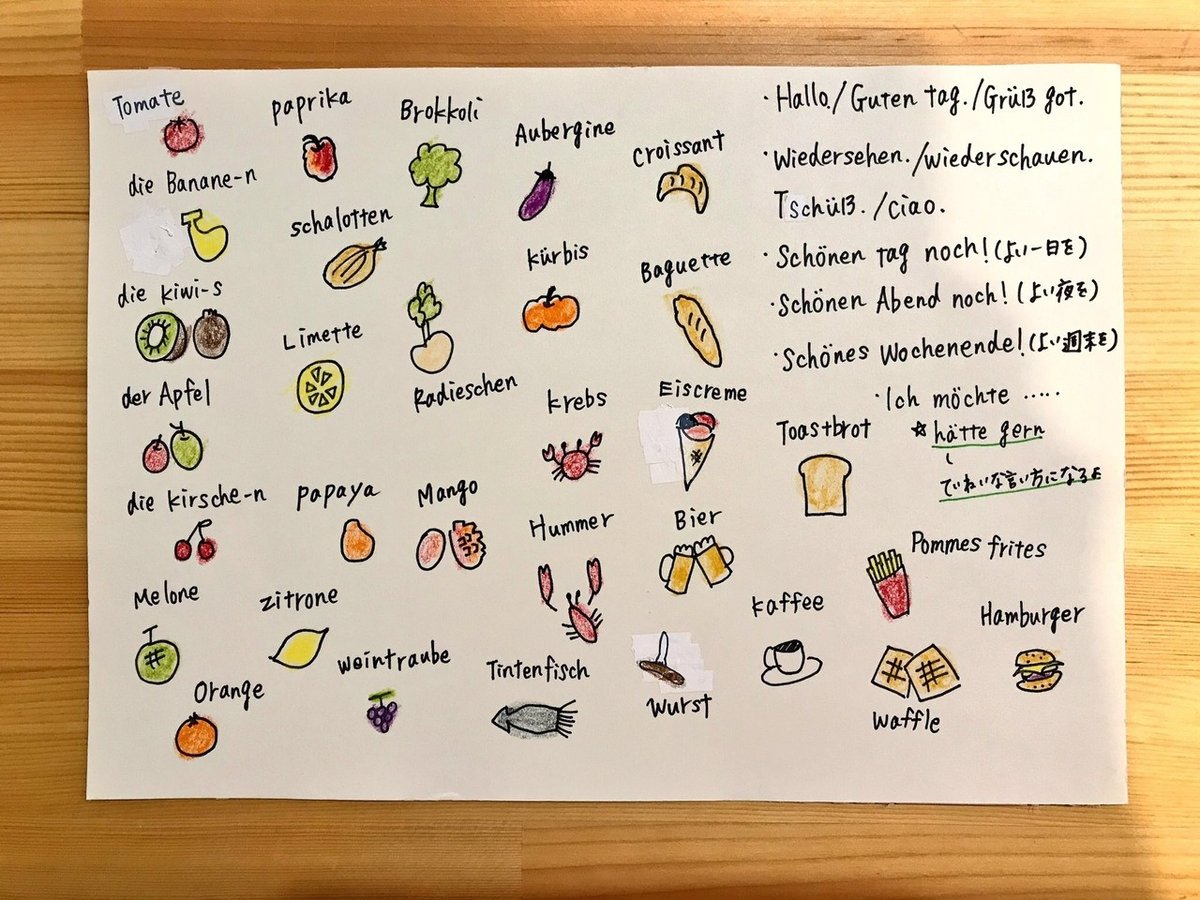 Tomate
paprika
Brokkoli
Aubergine
Croissant
die Banane-n
schalotten
kürbis
Baguette
die kiwi-s
Limette
Radieschen
der Apfel
krebs
Eiscreme
Toastbrot
die kirsche-n
papaya
Mango
Hummer
Bier
Pommes frites
Melone
zitrone
weintraube
Tintenfisch
kaffee
Hamburger
Orange
wurst
waffle
・Hallo./Guten tag./Grüß got.
・Wiedersehen./wiederschauen.
Tschüß./ciao.
・Schönen tag noch!(よい一日を)
・Schönen Abend noch!(よい夜を)
・Schönes Wochenende!(よい週末を)
・Ich möchte ……
☆hätte gern
ていねいな言い方になるよ